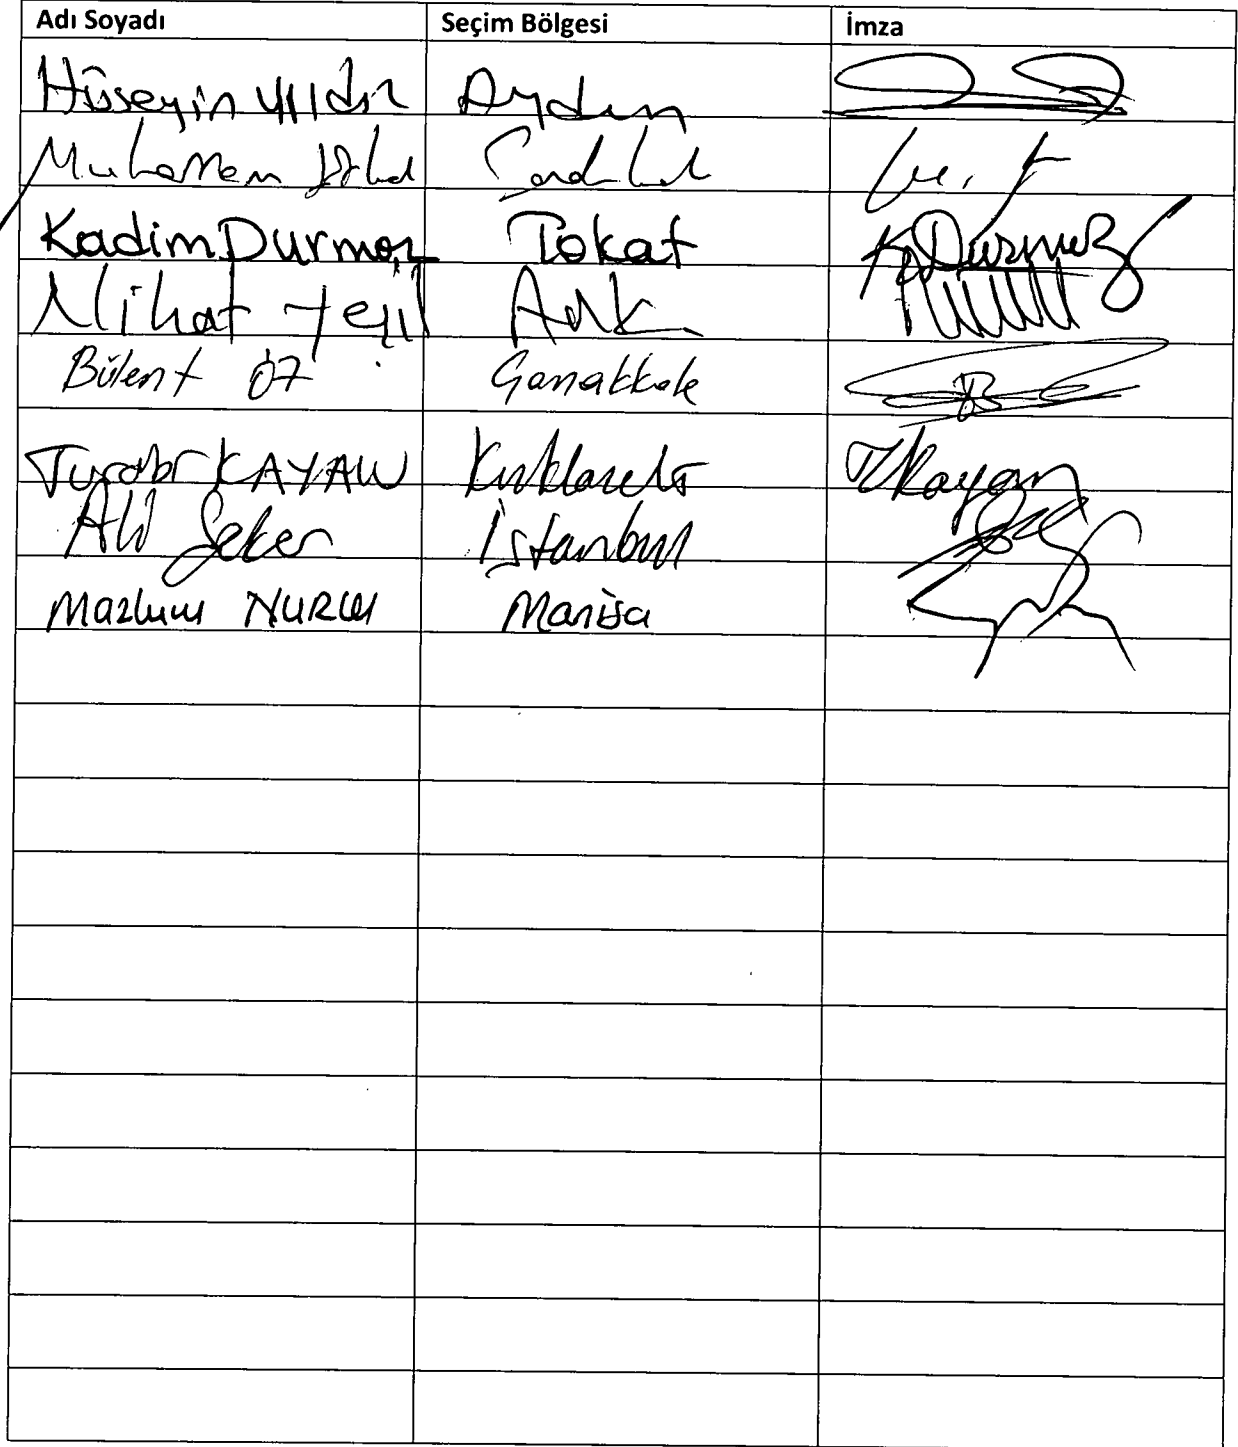 Adı Soyadı Seçim Bölgesi İmza
Hüseyin Yıldız Aydın
Muharrem
Kadim Durmaz Tokat K. Durmaz
Nihat Yeşil Ank.
Bülent Öz Çanakkale
Turabi KAYAN Kırklareli T. Kayan
Ali Şeker İstanbul
Mazlum NURLU Manisa